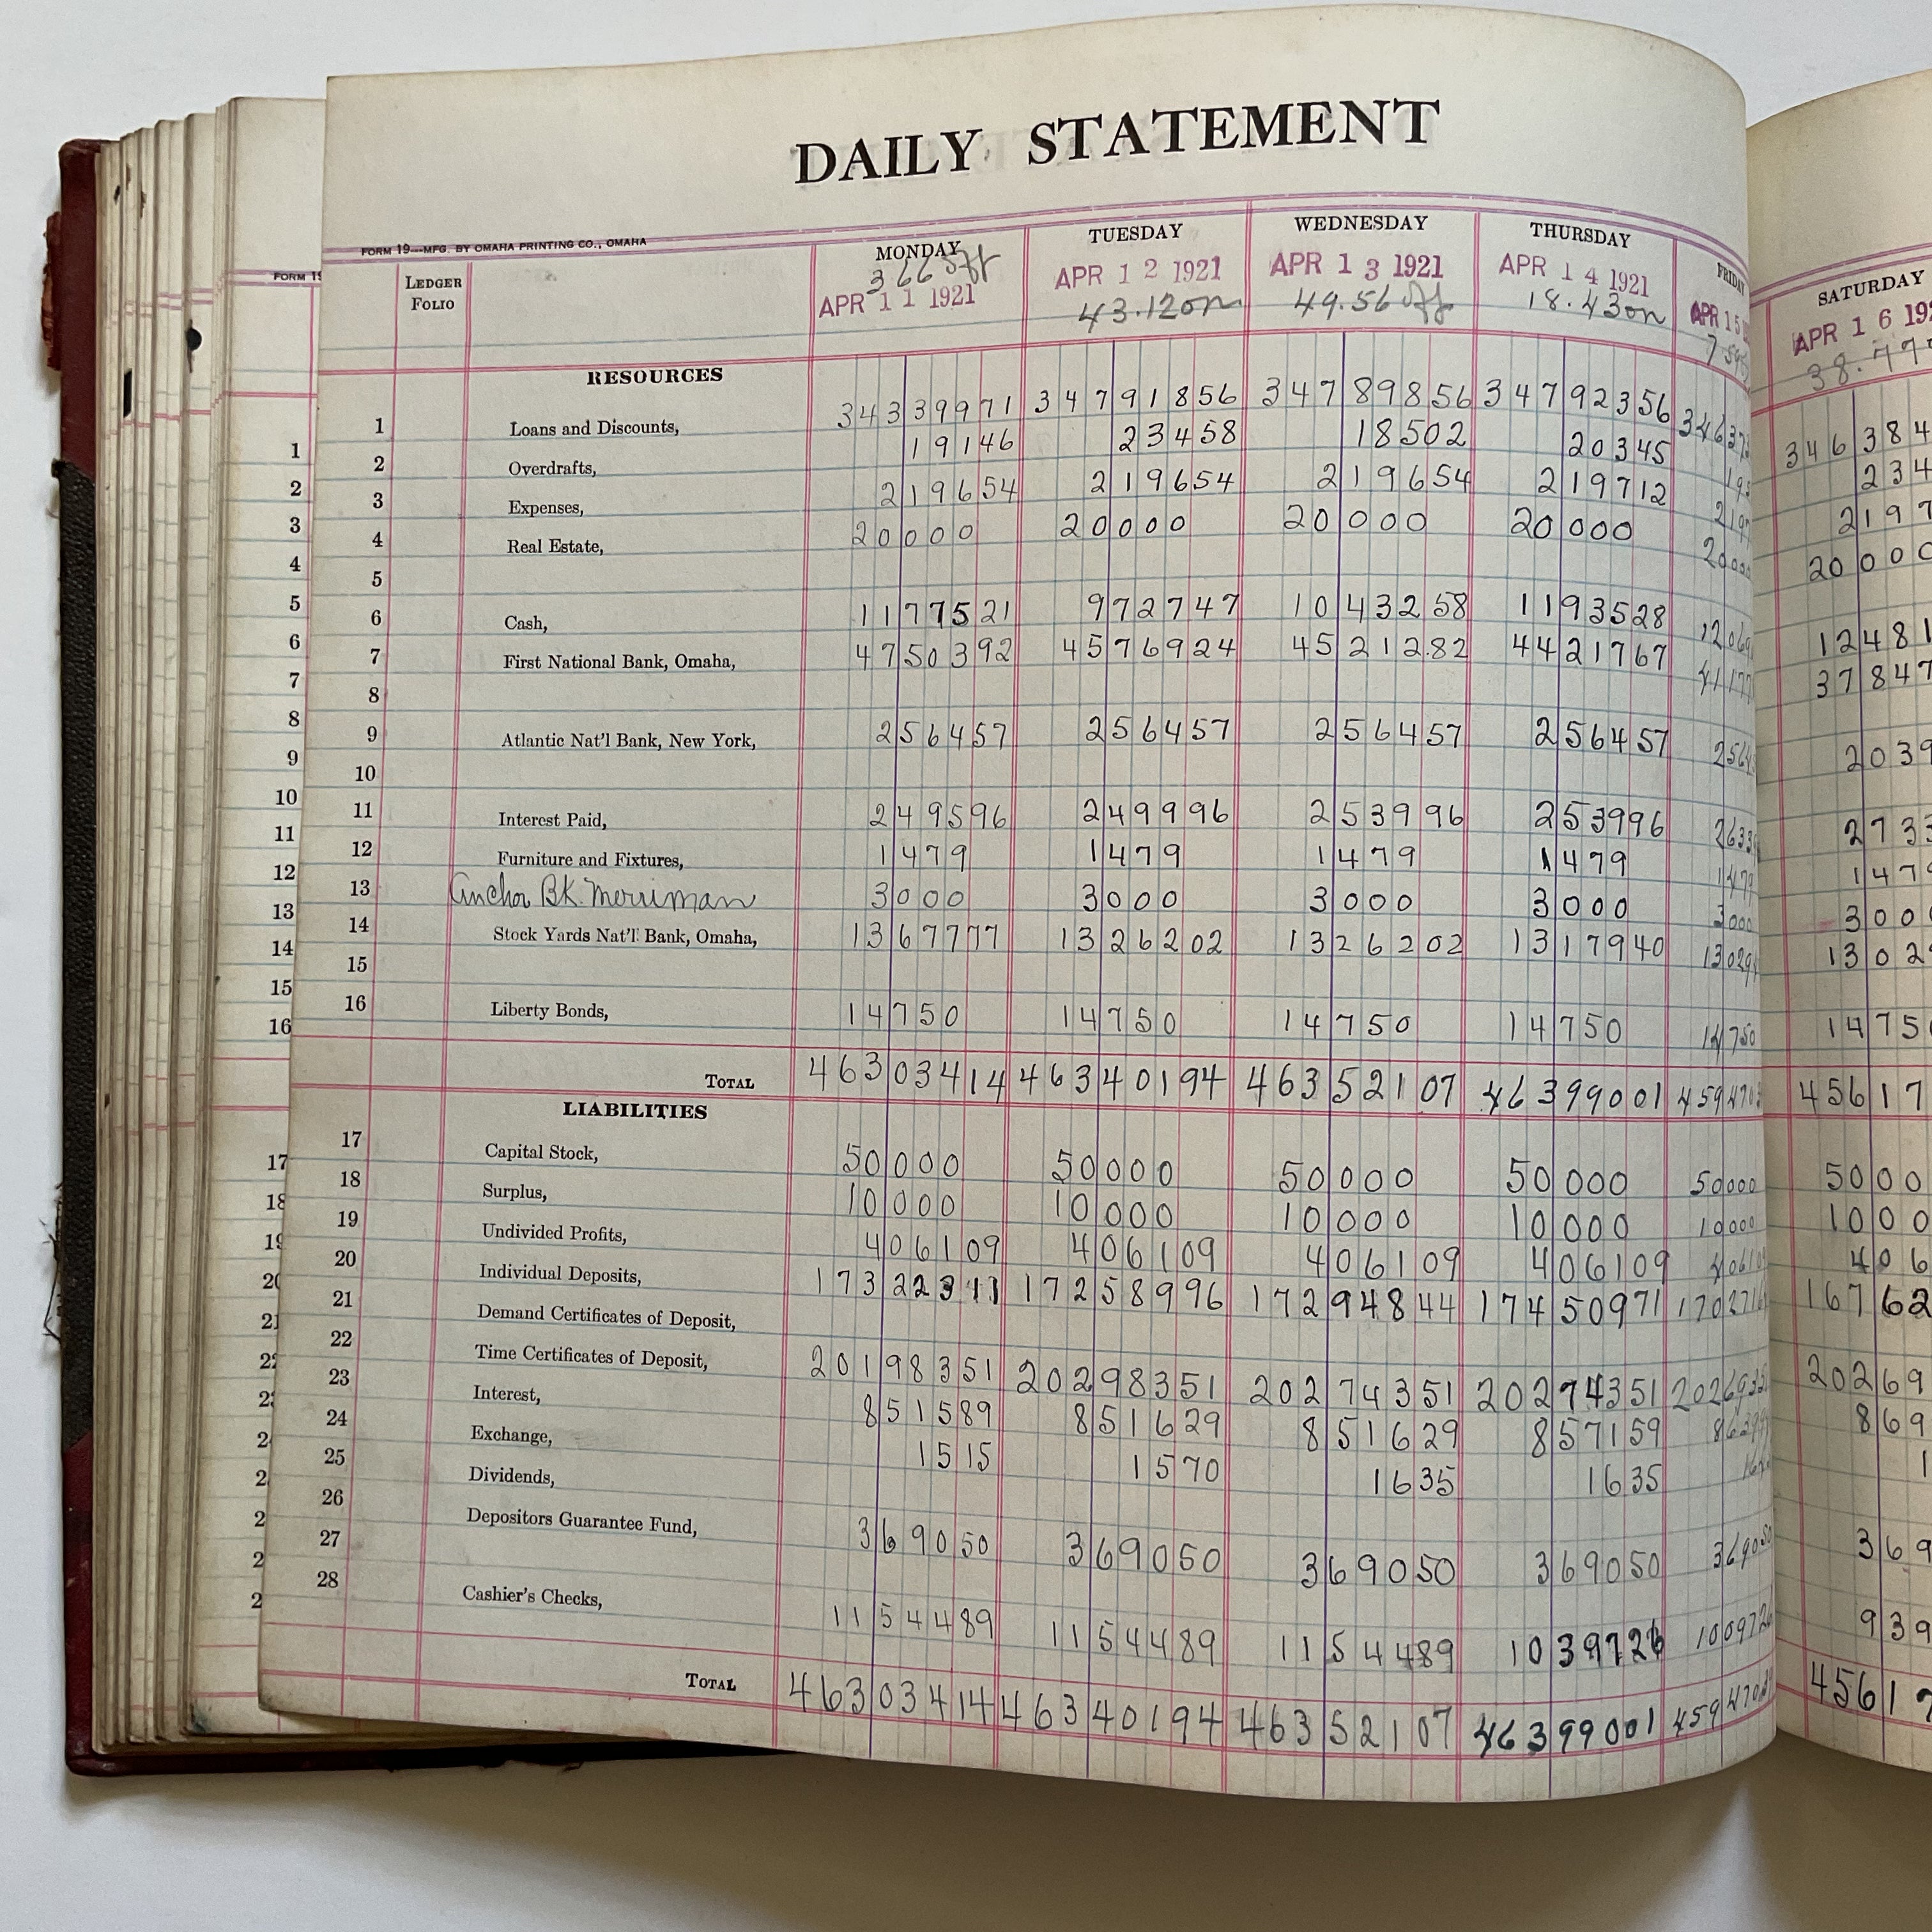 DAILY STATEMENT
FORM 19—MFG. BY OMAHA PRINTING CO., OMAHA
FORM 19
LEDGER FOLIO MONDAY TUESDAY WEDNESDAY THURSDAY FRIDAY SATURDAY
366 off
APR 11 1921 APR 12 1921 APR 13 1921 APR 14 1921 APR 15 APR 16 192
43.12 on 49.56 off 18.43 on 38.77
RESOURCES
1 Loans and Discounts, 34339971 34791856 34789856 34792356 346373 346384
2 Overdrafts, 19146 23458 18502 20345 195 234
3 Expenses, 219654 219654 219654 219712 2197 2197
4 Real Estate, 20000 20000 20000 20000 20000 2000
5
6 Cash, 1177521 972747 1043258 1193528 12069 12481
7 First National Bank, Omaha, 4750392 4576924 4521282 4421767 41177 37847
8
9 Atlantic Nat'l Bank, New York, 256457 256457 256457 256457 2564 2039
10
11 Interest Paid, 249596 249996 253996 253996 2633 2733
12 Furniture and Fixtures, 1479 1479 1479 1479 1479 1479
13 Anchor Bk. Merriman 3000 3000 3000 3000 3000 300
14 Stock Yards Nat'l Bank, Omaha, 1367777 1326202 1326202 1317940 13029 1302
15
16 Liberty Bonds, 14750 14750 14750 14750 14750 1475
TOTAL 46303414 46340194 46352107 46399001 459470 45617
LIABILITIES
17 Capital Stock, 50000 50000 50000 50000 50000 5000
18 Surplus, 10000 10000 10000 10000 10000 1000
19 Undivided Profits, 406109 406109 406109 406109 40610 406
20 Individual Deposits, 17322311 17258996 17294844 17450971 170271 16762
21 Demand Certificates of Deposit,
22 Time Certificates of Deposit, 20198351 20298351 20274351 20274351 2026935 20269
23 Interest, 851589 851629 851629 857159 8639 869
24 Exchange, 1515 1570 1635 1635 1
25 Dividends,
26 Depositors Guarantee Fund, 369050 369050 369050 369050 369050 369
27
28 Cashier's Checks, 1154489 1154489 1154489 1039726 1009726 939
TOTAL 46303414 46340194 46352107 46399001 459470 45617